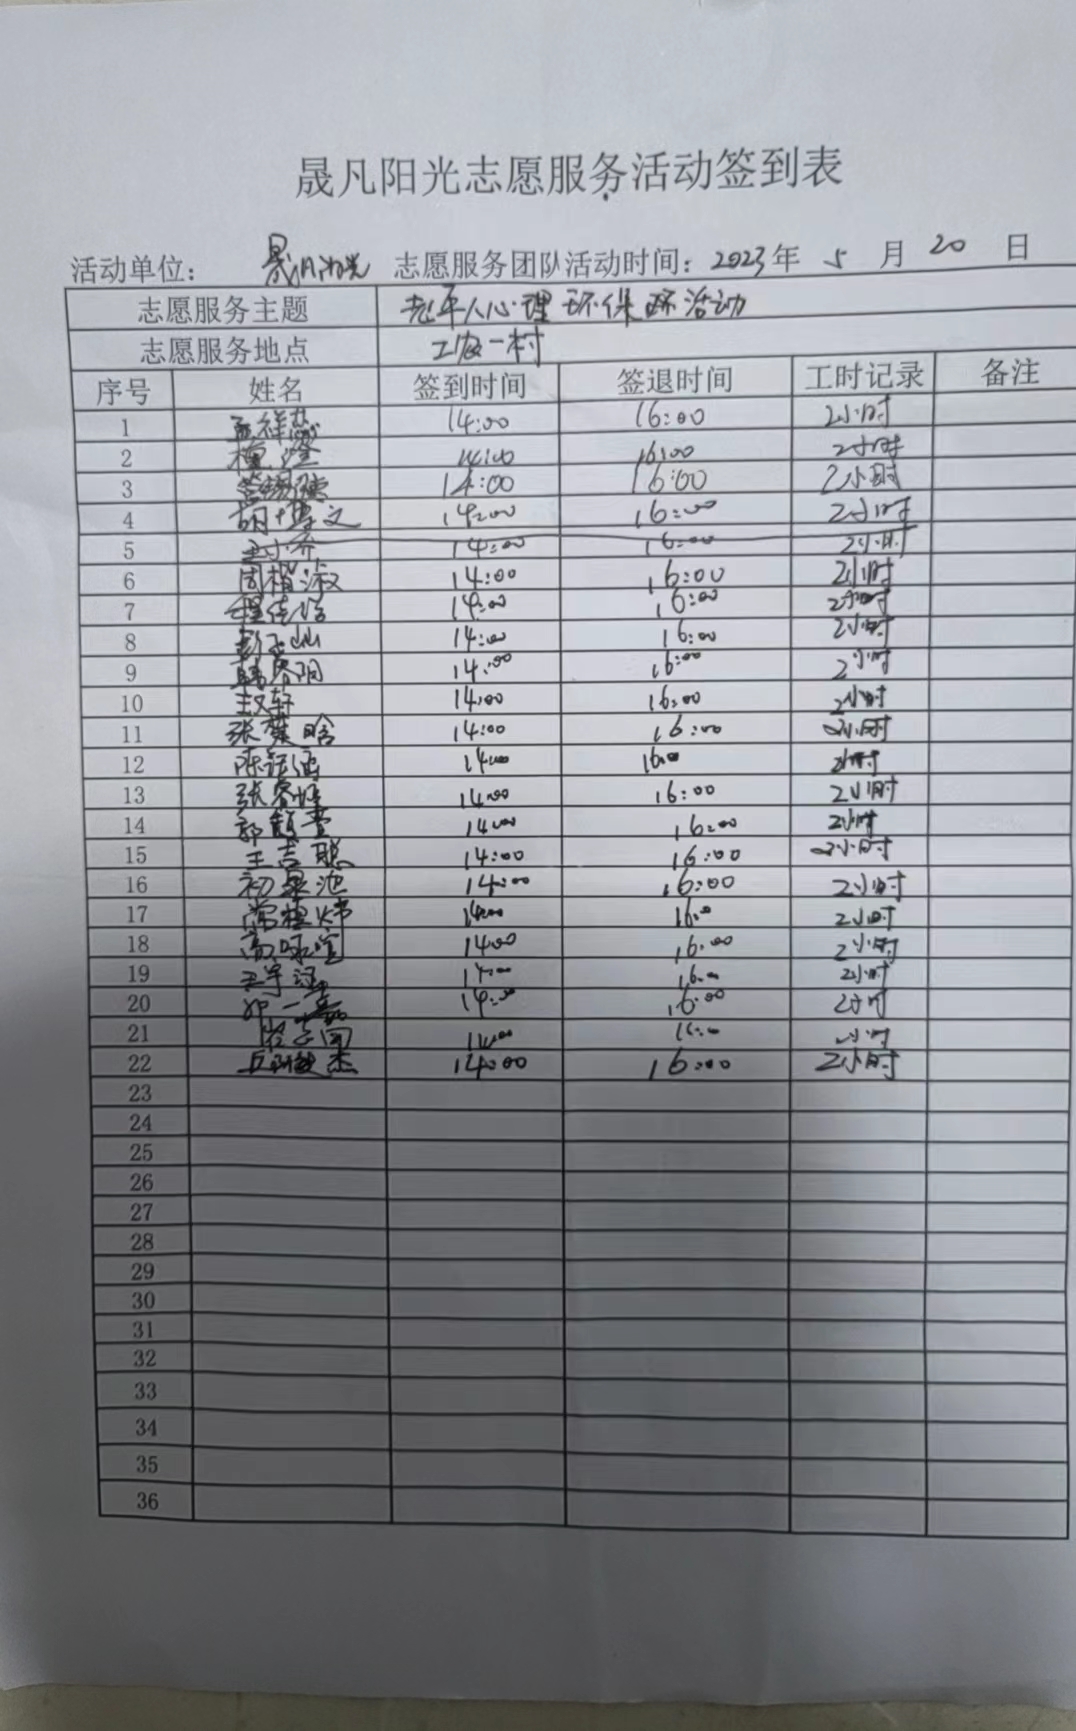 晟凡阳光志愿服务活动签到表
活动单位： 晟凡阳光 志愿服务团队活动时间：2023年 5 月 20 日
志愿服务主题 老年人心理 环保 活动
志愿服务地点 工农一村
序号 姓名 签到时间 签退时间 工时记录 备注
1 14:00 16:00 2小时
2 14:00 16:00 2小时
3 14:00 16:00 2小时
4 胡博文 14:00 16:00 2小时
5 14:00 16:00 2小时
6 14:00 16:00 2小时
7 14:00 16:00 2小时
8 14:00 16:00 2小时
9 14:00 16:00 2小时
10 14:00 16:00 2小时
11 14:00 16:00 2小时
12 14:00 16:00 2小时
13 14:00 16:00 2小时
14 14:00 16:00 2小时
15 王吉聪 14:00 16:00 2小时
16 14:00 16:00 2小时
17 14:00 16:00 2小时
18 高咏宣 14:00 16:00 2小时
19 14:00 16:00 2小时
20 14:00 16:00 2小时
21 14:00 16:00 小时
22 14:00 16:00 2小时
23
24
25
26
27
28
29
30
31
32
33
34
35
36